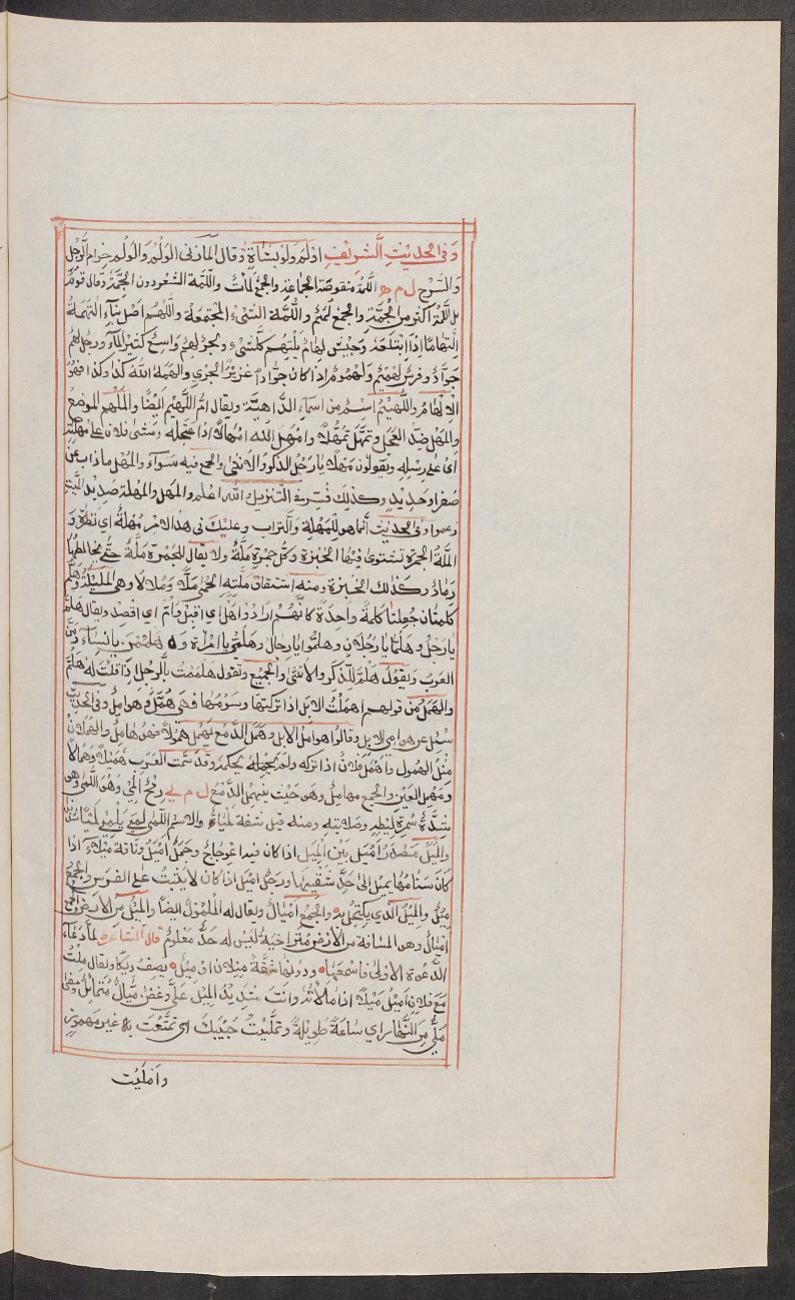 وفي الحديث الشريف اذلم ولو بشاة وقال المازني الولم والولم حزام الرحل
والسرج ل م ه اللمة منقوصة الجماعة والجمع لمات واللمة الشعر دون الجمة وقال قوم
بل اللمة اكثر من الجمة والجمع لمم واللمة الشيء المجتمعة واللهم اصل بناء التهمة
التهاما اذا ابتلعه وجيش لهام يلتهم كل شيء وبحر لهم واسع كثير الماء ورجل لهم
جواد وفرس لهميم ولهموم اذا كان جوادا غزير الجري والهمه الله كذا وكذا فهو
الالهام واللهيم اسم من اسماء الداهية ويقال ام اللهيم ايضا والملهم الموضع
والمهل ضد العجل وتمهل تمهلا وامهل الله امهالا اذا لم يعجله ومشى فلان على مهلته
اي على رسله وتقولون مهلا يا رجل الذكر والانثى والجمع فيه سواء والمهل ما ذاب من
صفر او حديد وكذلك فسر في التنزيل والله اعلم والمهل والمهلة صديد الميت
وفي الحديث انما هو للمهلة والتراب وعليك في هذا الامر مهلة اي نظرة و
الملة الحمرة تشتوى فيها الخبزة وكل جمرة ملة ولا يقال للجمرة ملة حتى يخالطها
رماد وكذلك الخبزة ومنه اشتقاق ملته الحمى ملا وملالا وهي المليلة وهلم
كلمتان جعلتا كلمة واحدة كانهم ارادوا هل اي اقبل وام اي اقصد ويقال هلم
يا رجل وهلما يا رجلان وهلموا يا رجال وهلمي يا امراة وهلممن يا نساء ومن
العرب من يقول هلم للذكر والانثى والجميع وتقول هلممت بالرجل اذا قلت له هلم
والهمل من قولهم اهملت الابل اذا تركتها وسومها فهي همل وهوامل وفي الحديث
سئل عن هوامي الابل وقالوا هوامل الابل وهمل الدمع يهمل همولا فهو هامل والهملان
مثل الهمول واهمل فلان اذا تركه ولم يحكمه وقد سمت العرب هميلا وهمالا
ومهمل العين والجمع مهامل وهو حيث ينهمل الدمع ل م ي رمح المي وهو اللمى وهو
شدة سمرة ليطه وصلابته ومنه قيل شفة لمياء والاسم اللمى لمي يلمى لميا
والميل مصدر اميل بين الميل اذا كان فيه اعوجاج وجمل اميل وناقة ميلاء اذا
كان سنامها يميل الى احد شقيها ورجل اميل اذا كان لا يثبت على الفرس والجمع
ميل والميل الذي يكتحل به والجمع اميال ويقال له الملمول ايضا والميل من الارض والجمع
اميال وهو المسافة من الارض متراخية ليس له حد معلوم قال الشاعر لما دعاه
الدعوة الاولى فاسمعها ودونها شقة ميلان او ميل يصف ديكا ويقال ملت
مع فلان اميل ميلا اذا ما لاته وانت شديد الميل علي وغصن ميال متمائل ومضى
ملي من النهار اي ساعة طويلة وتمليت حبيبك اي تمتعت به غير مهموز
وامليت